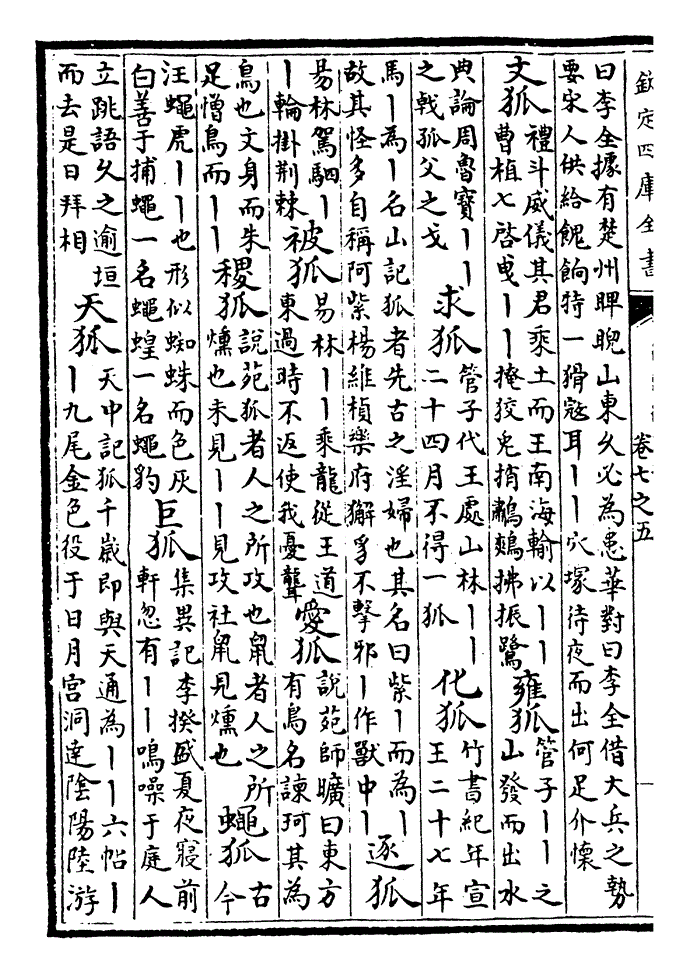 欽定四庫全書
卷七之五
曰李全據有楚州睥睨山東久必為患華對曰李全借大兵之勢
要宋人供給餽餉特一猾寇耳丨丨穴塚待夜而出何足介懷
文狐
禮斗威儀其君乘土而王南海輸以丨丨
曹植七啓曵丨丨掩狡兎捎鷫鷞拂振鷺
雍狐
管子丨丨之
山發而出水
典論周魯寶丨丨
之戟孤父之戈
求狐
管子代王處山林丨丨
二十四月不得一狐
化狐
竹書紀年宣
王二十七年
馬丨為丨名山記狐者先古之淫婦也其名曰紫丨而為丨
故其怪多自稱阿紫楊維楨樂府獬豸不擊邪丨作獸中丨
逐狐
易林駕駟丨
丨輪掛荆棘
被狐
易林丨丨乘龍從王道
東過時不返使我憂聾
愛狐
說苑師曠曰東方
有鳥名諫珂其為
鳥也文身而朱
足憎鳥而丨丨
稷狐
說苑狐者人之所攻也䑕者人之所
燻也未見丨丨見攻社䑕見燻也
蠅狐
古
今
汪蠅虎丨丨也形似蜘蛛而色灰
白善于捕蠅一名蠅蝗一名蠅豹
巨狐
集異記李揆盛夏夜寢前
軒忽有丨丨鳴噪于庭人
立跳語久之逾垣
而去是日拜相
天狐
天中記狐千歲即與天通為丨丨六帖丨
丨九尾金色役于日月宫洞達陰陽陸游